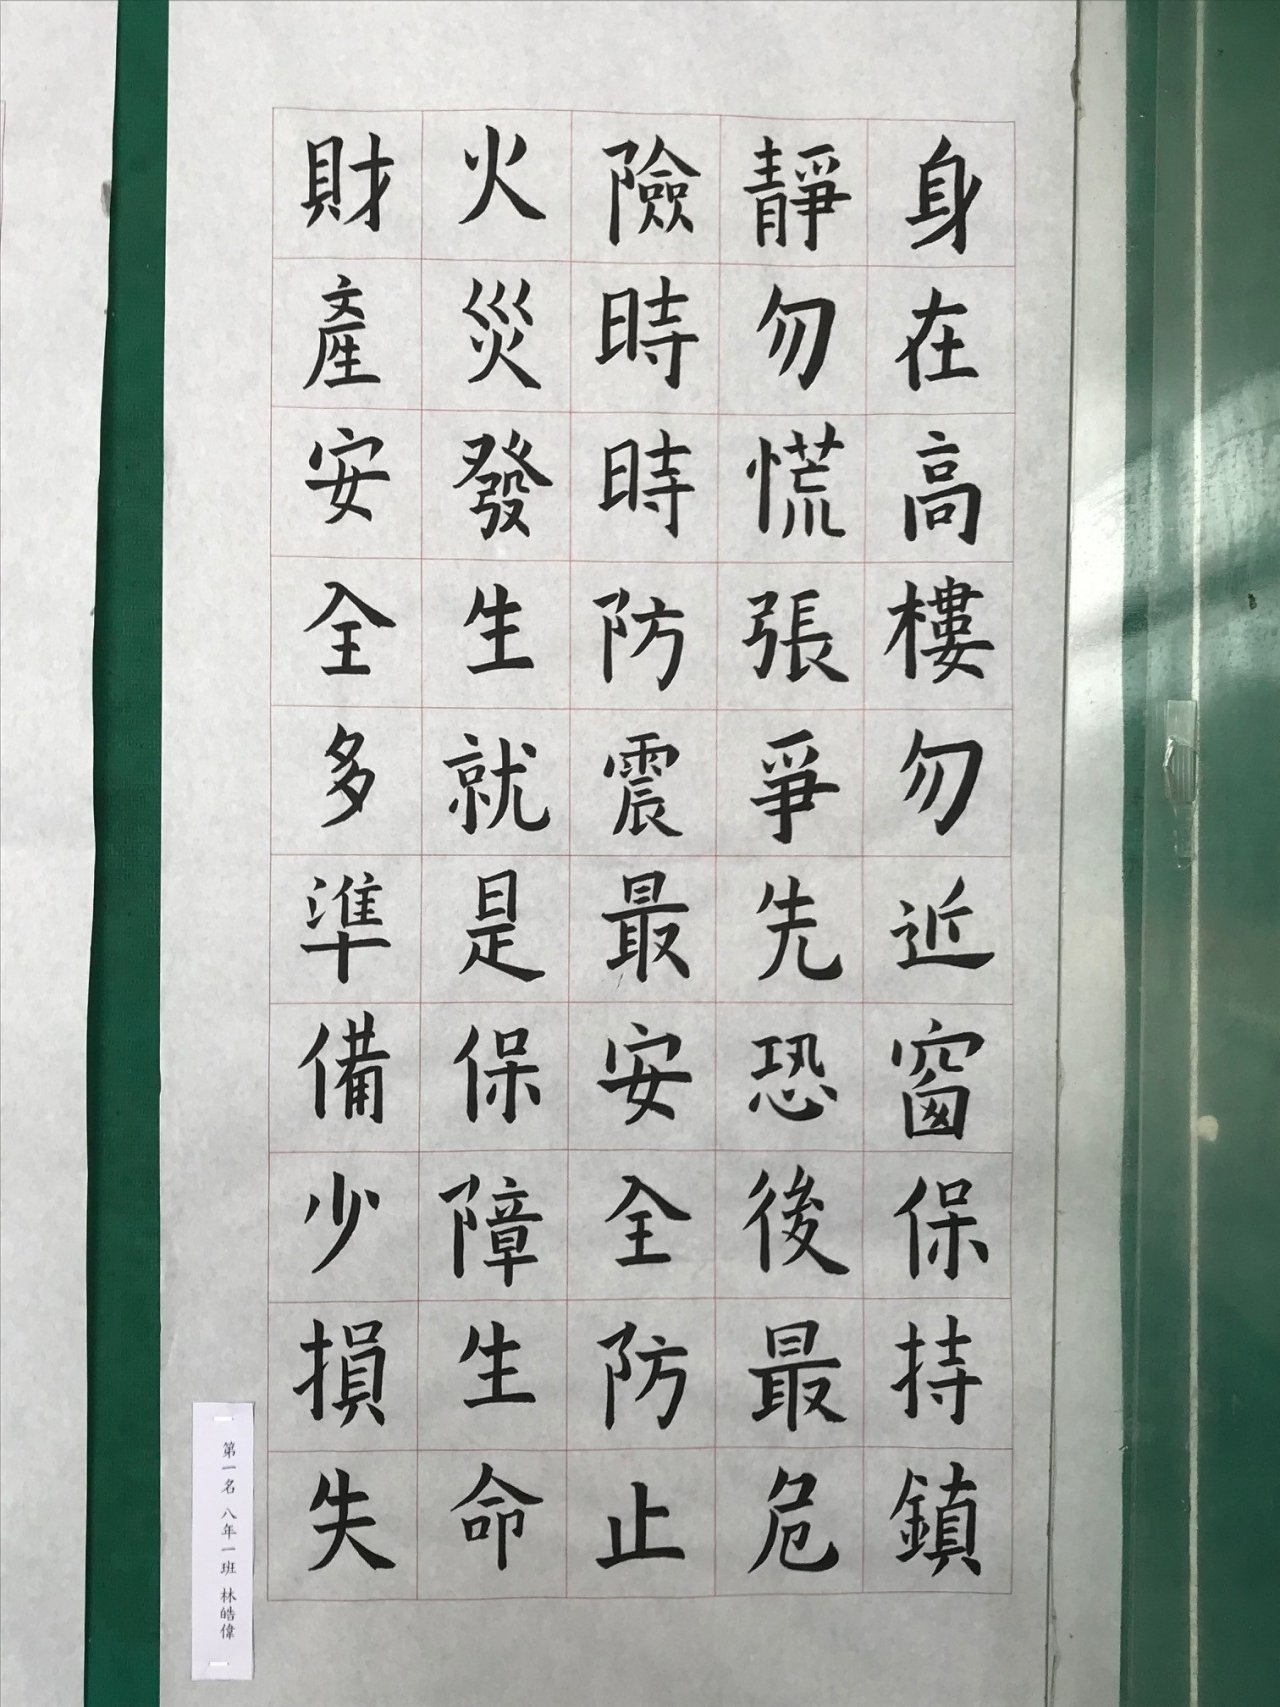 身在高樓勿近窗保持鎮
靜勿慌張爭先恐後最危
險時時防震最安全防止
火災發生就是保障生命
財產安全多準備少損失
第一名 八年一班 林皓偉